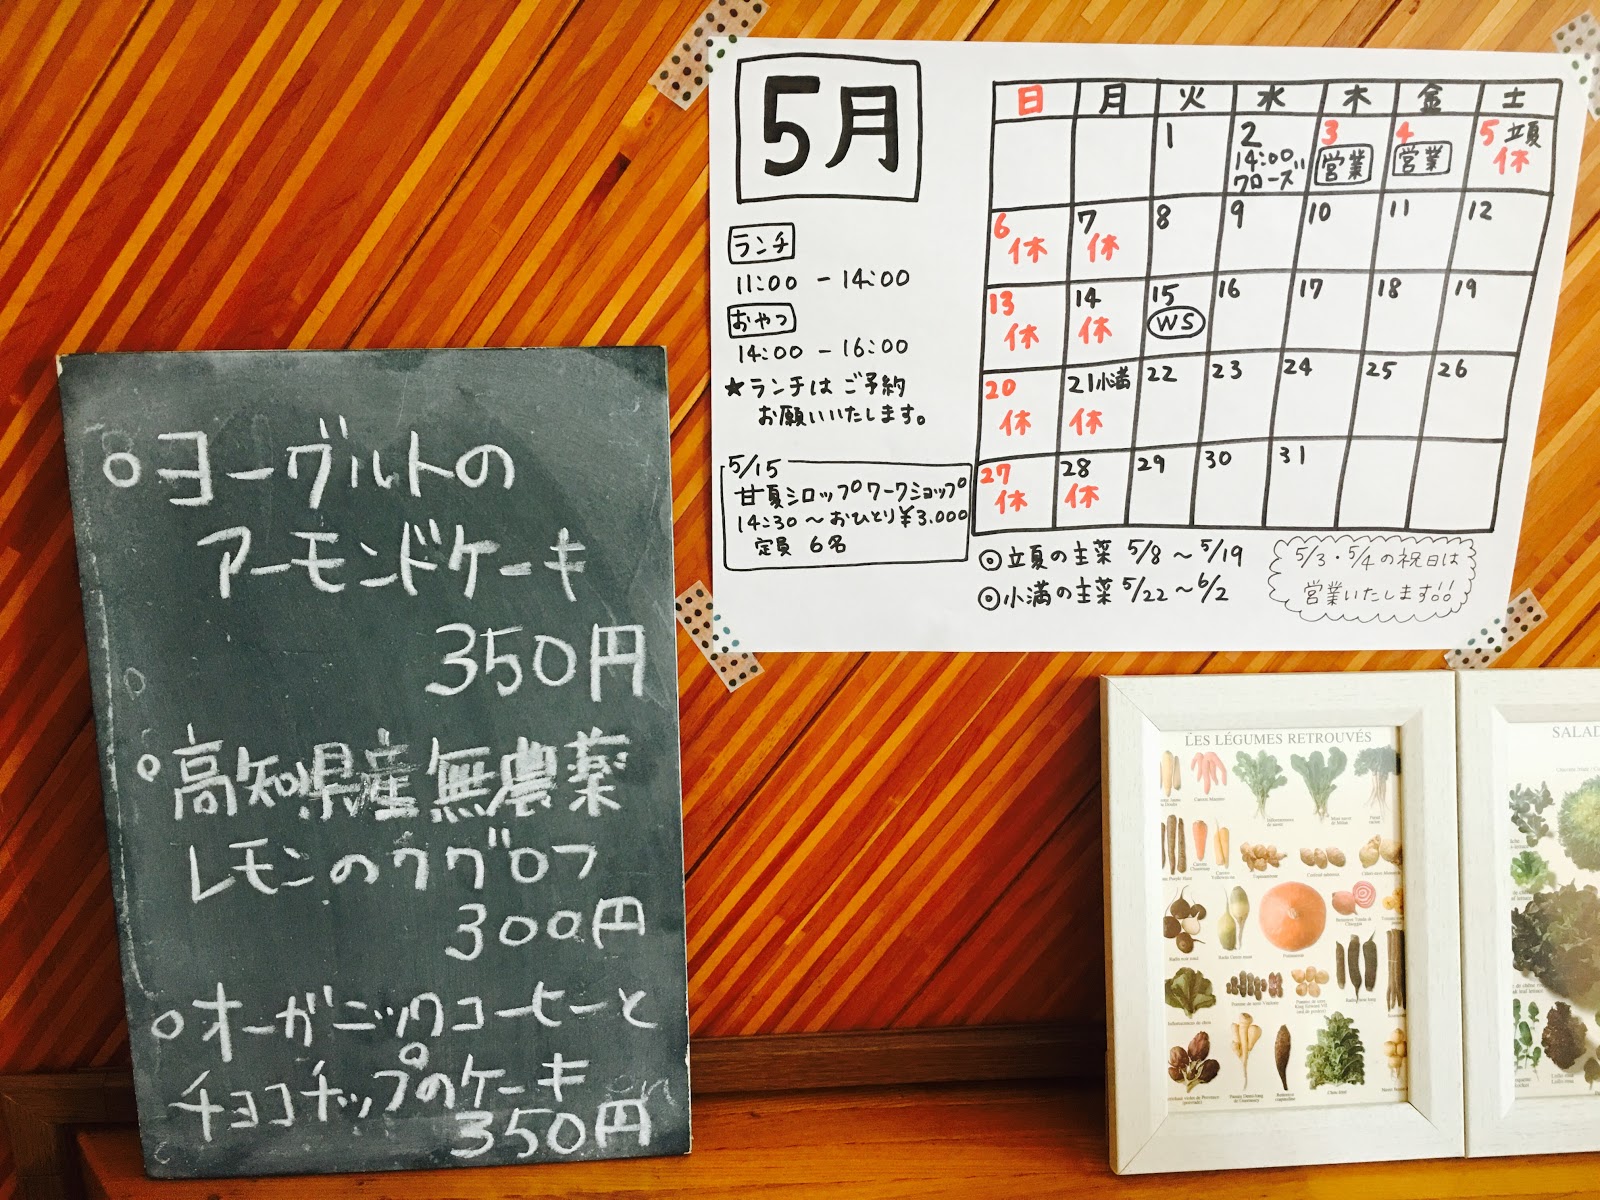 ヨーグルトの
アーモンドケーキ
350円
高知県産無農薬
レモンのクグロフ
300円
オーガニックコーヒーと
チョコチップのケーキ
350円
5月
ランチ
11:00 - 14:00
おやつ
14:00 - 16:00
★ランチはご予約
お願いいたします。
5/15
甘夏シロップワークショップ
14:30〜おひとり¥3.000
定員 6名
日 月 火 水 木 金 土
1 2 3 4 5 立夏
14:00 クローズ 営業 営業 休
6 7 8 9 10 11 12
休 休
13 14 15 16 17 18 19
休 休 WS
20 21小満 22 23 24 25 26
休 休
27 28 29 30 31
休 休
◎立夏の主菜 5/8 〜 5/19
◎小満の主菜 5/22 〜 6/2
5/3・5/4の祝日は
営業いたします!!
LES LÉGUMES RETROUVÉS
SALAD